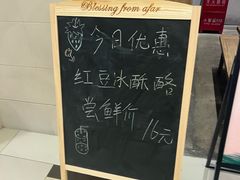 Blessing from afar
今日优惠
红豆冰酥酪
尝鲜价
16元